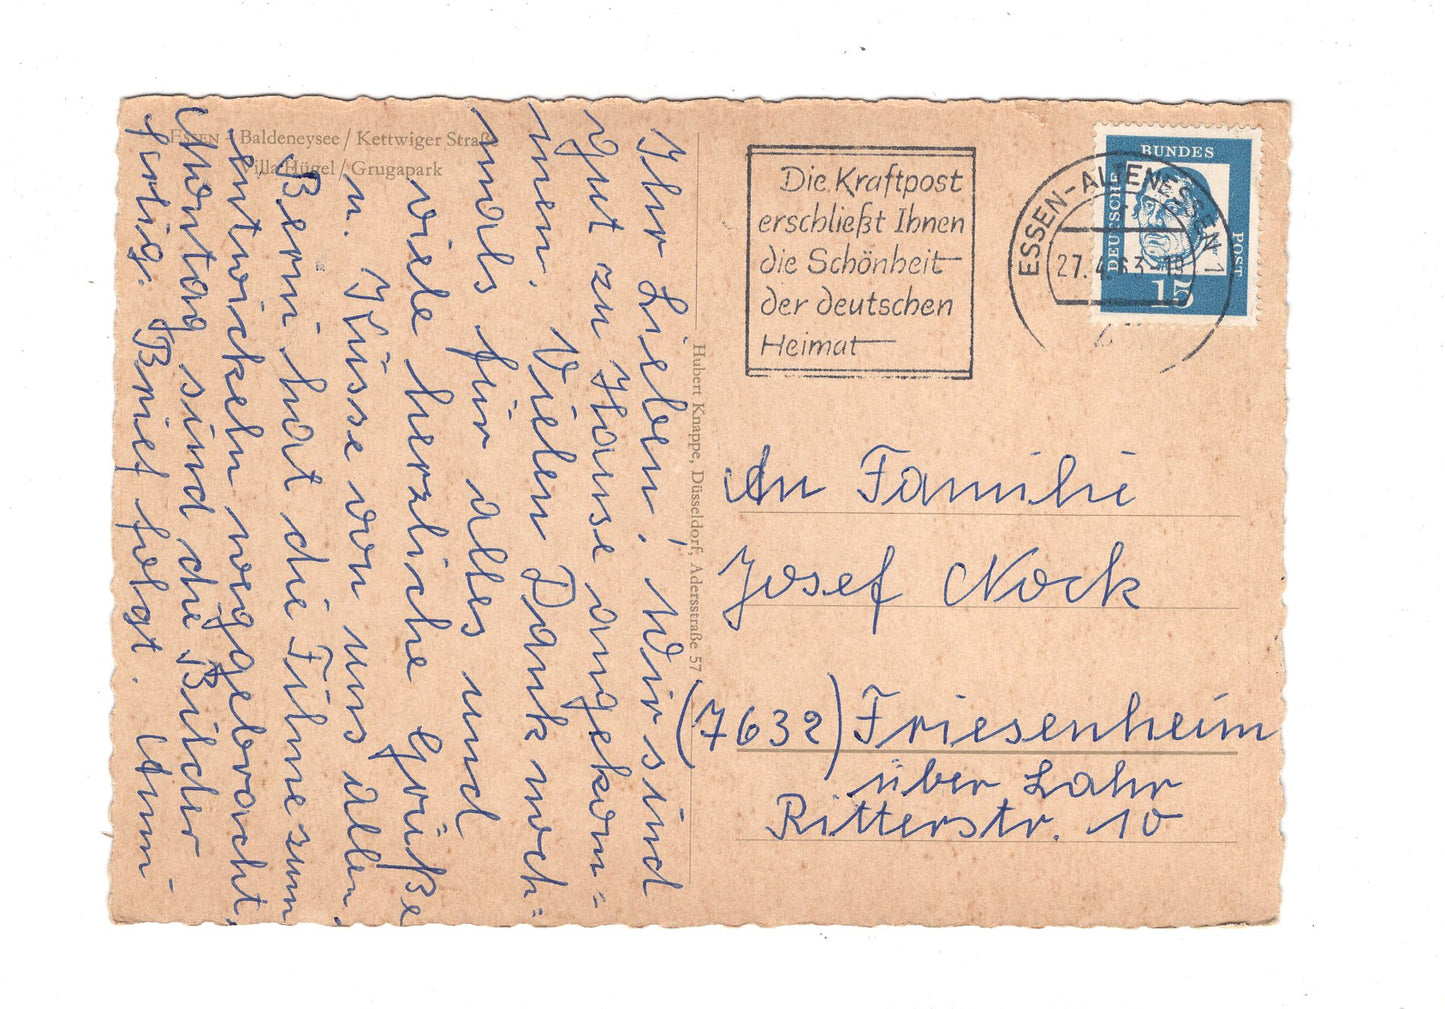 ESSEN – Baldeneysee / Kettwiger Straße
Villa Hügel / Grugapark
Ihr Lieben! Wir sind
gut zu Hause angekom=
men. Vielen Dank noch=
mals für alles und
viele herzliche Grüße
u. Küsse von uns allen.
Berni hat die Filme zum
entwickeln weggebracht,
Montag sind die Bilder
fertig. Brief folgt.
Hubert Knappe, Düsseldorf, Adersstraße 57
Die Kraftpost
erschließt Ihnen
die Schönheit
der deutschen
Heimat
ESSEN-ALTENESSEN 1
27.4.63-19
DEUTSCHE
BUNDES
POST
15
An Familie
Josef Nock
(7632) Friesenheim
über Lahr
Ritterstr. 10